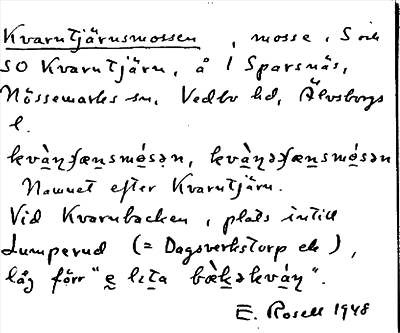 Kvarntjärnsmossen, mosse, S och
SO Kvarntjärn, å 1 Sparsnäs,
Nössemarks sn, Vedbo hd, Älvsborgs
l.
kvàɳʃæn̠smó̠sən, kvàɳəʃæn̠smó̠sən
Namnet efter Kvarntjärn.
Vid Kvarnbacken, plats intill
Lumperud (= Dagsverkstorp ek),
låg förr "e̠ lɪt̠a bæ̀k̠əkváɳ".
E. Rosell 1948